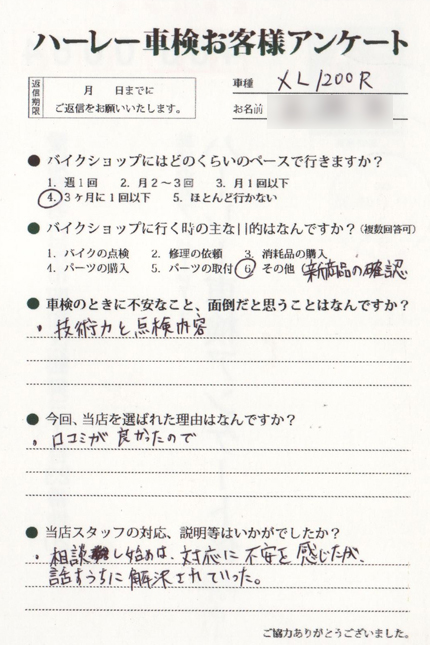 ハーレー車検お客様アンケート
返信期限
月 日までに
ご返信をお願いいたします。
車種 XL1200R
お名前
● バイクショップにはどのくらいのペースで行きますか？
1. 週1回 2. 月2〜3回 3. 月1回以下
4. 3ヶ月に1回以下 5. ほとんど行かない
● バイクショップに行く時の主な目的はなんですか？(複数回答可)
1. バイクの点検 2. 修理の依頼 3. 消耗品の購入
4. パーツの購入 5. パーツの取付 6. その他 (新商品の確認
● 車検のときに不安なこと、面倒だと思うことはなんですか？
・技術力と点検内容
● 今回、当店を選ばれた理由はなんですか？
・口コミが良かったので
● 当店スタッフの対応、説明等はいかがでしたか？
・相談し始めは、対応に不安を感じたが、
話すうちに解決されていった。
ご協力ありがとうございました。